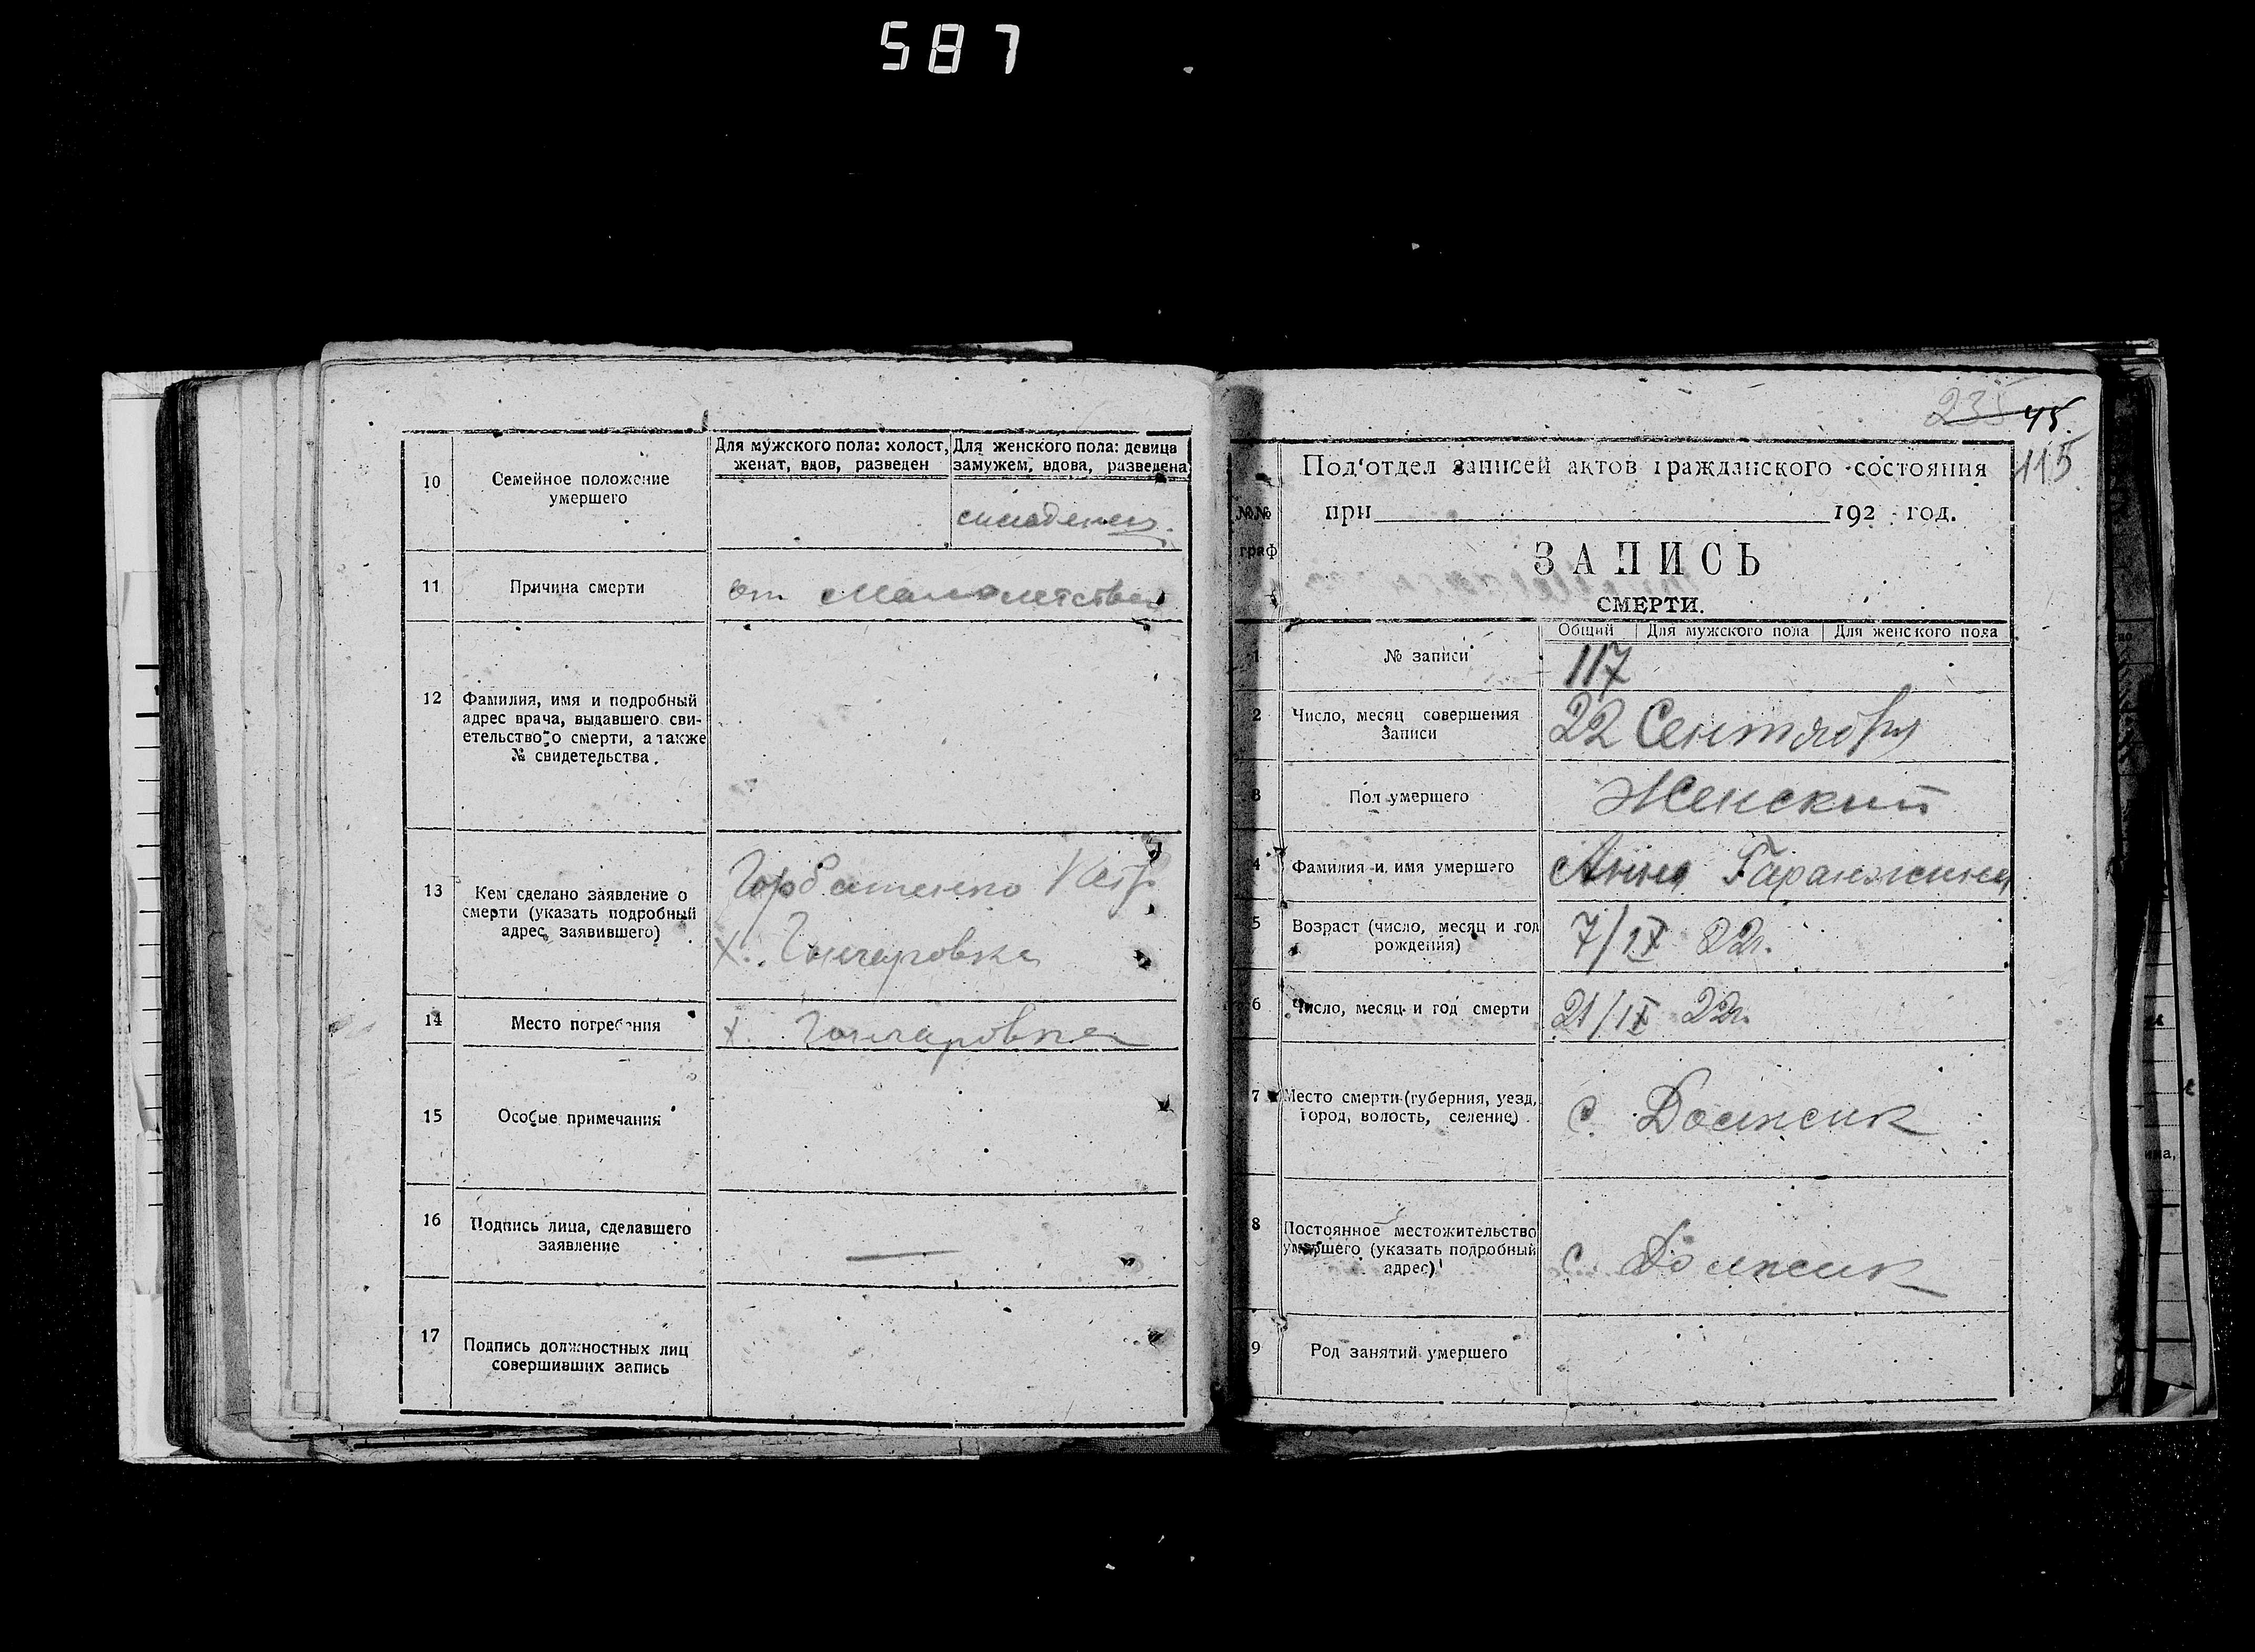 587
10
Семейное положение
умершего
Для мужского пола: холост,
женат, вдов, разведен
Для женского пола: девица
замужем, вдова, разведена
младенец.
11
Причина смерти
от малолетства
12
Фамилия, имя и подробный
адрес врача, выдавшего сви-
етельство о смерти, а также
№ свидетельства.
13
Кем сделано заявление о
смерти (указать подробный
адрес, заявившего)
Горбатенко
х. Гончаровка
14
Место погребения
х. Гончаровка
15
Особые примечания
16
Подпись лица, сделавшего
заявление
17
Подпись должностных лиц
совершивших запись
235 45.
115
Под'отдел записей актов гражданского состояния
при 192 год.
№№
граф
ЗАПИСЬ
СМЕРТИ.
Общий Для мужского пола Для женского пола
1
№ записи
117
2
Число, месяц совершения
записи
22 Сентября
3
Пол умершего
Женский
4
Фамилия и имя умершего
Анна Гаранжина
5
Возраст (число, месяц и год
рождения)
7/IX 22г.
6
Число, месяц и год смерти
21/IX 22г.
7
Место смерти (губерния, уезд,
город, волость, селение)
с. Должик
8
Постоянное местожительство
умершего (указать подробный
адрес)
с. Должик
9
Род занятий умершего